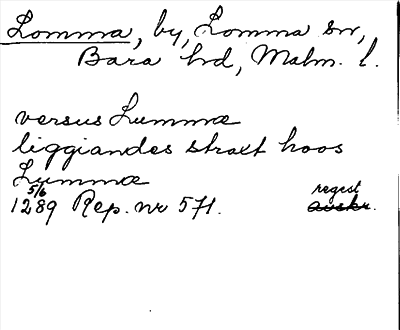 Lomma, by, Lomma sn,
Bara hd, Malm. l.
versus Lummæ
liggiandes straxt hoos
Lummæ
5/6 regest
1289 Rep. nr 571. avskr.